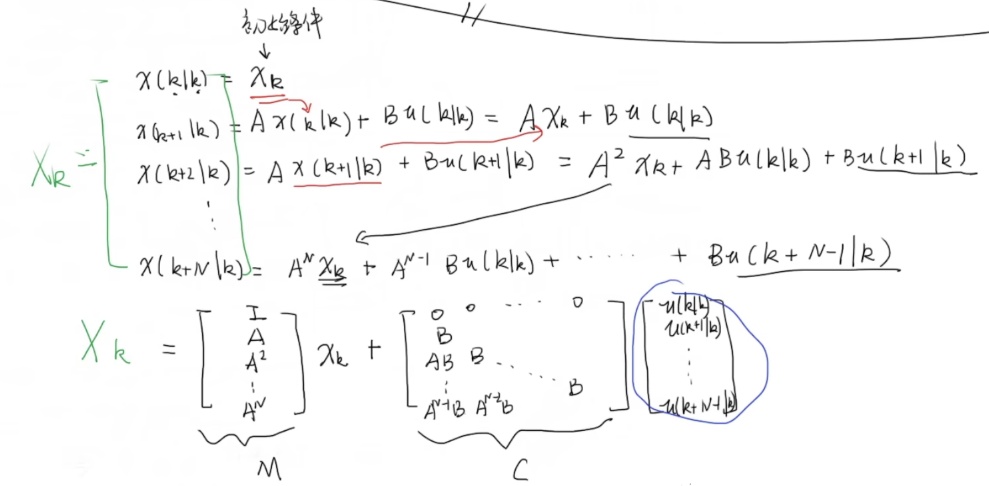 初始条件
x(k|k) = xk
x(k+1|k) = A x(k|k) + B u(k|k) = A xk + B u(k|k)
x(k+2|k) = A x(k+1|k) + B u(k+1|k) = A² xk + A B u(k|k) + B u(k+1|k)
Xk =
⋮
x(k+N|k) = A^N xk + A^N-1 B u(k|k) + ······ + B u(k+N-1|k)
Xk = [ I A A² ⋮ A^N ] xk + [ 0 0 ···· 0 B AB B ····· B ⋮ A^N-1 B A^N-2 B ] [ u(k|k) u(k+1|k) ⋮ u(k+N-1|k) ]
M C